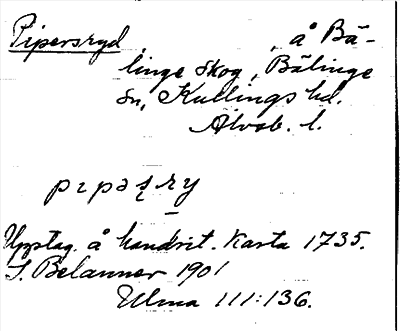 Pipersryd, å Bä-
linge skog, Bälinge
sn, Kullings hd.
Älvsb. l.
Upptag. å handrit. karta 1735.
S. Belanner 1901
Ulma 111:136.